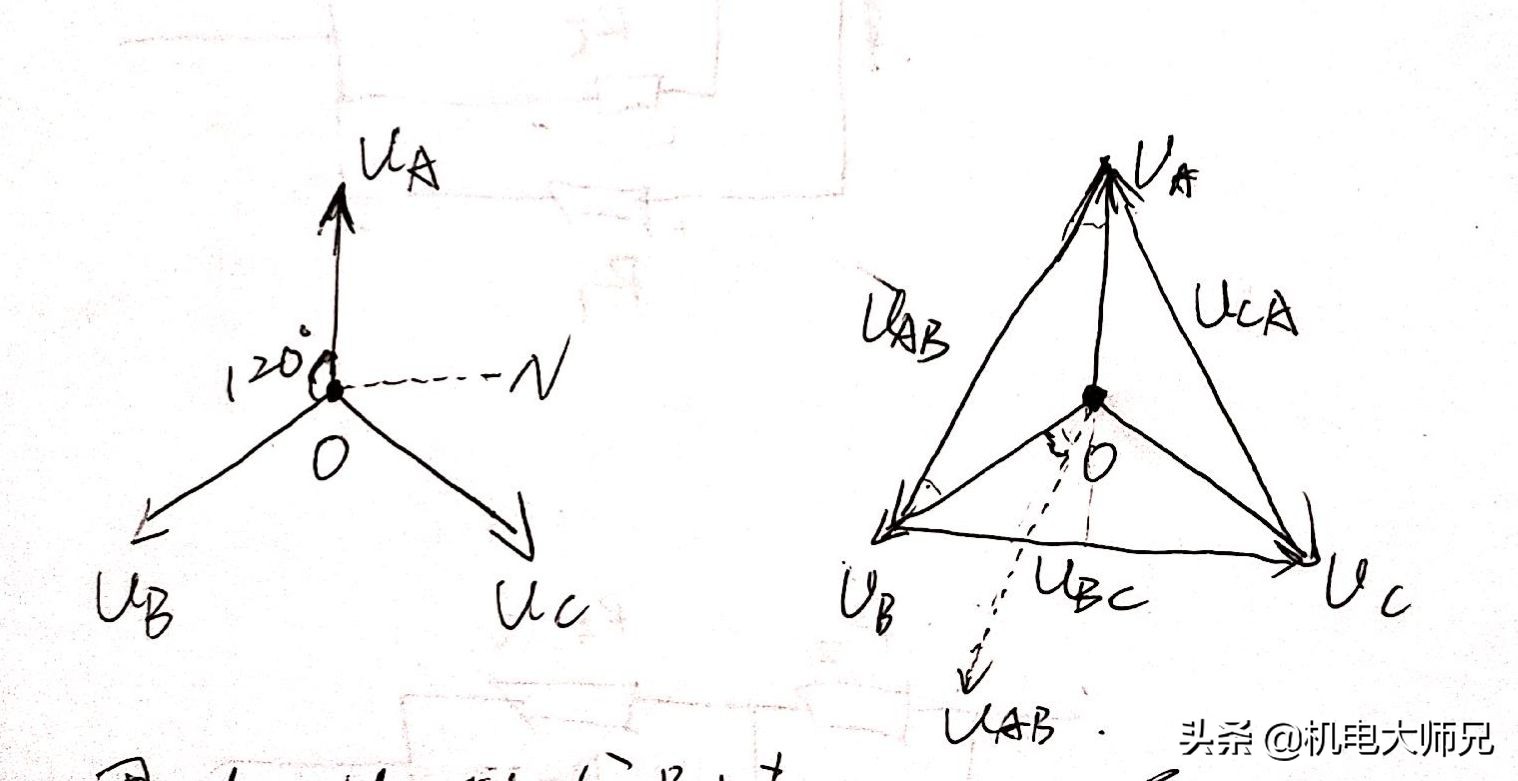 UA
120°
N
O
UB
UC
UA
UAB
UCA
O
UB
UBC
UC
UAB
头条 @机电大师兄